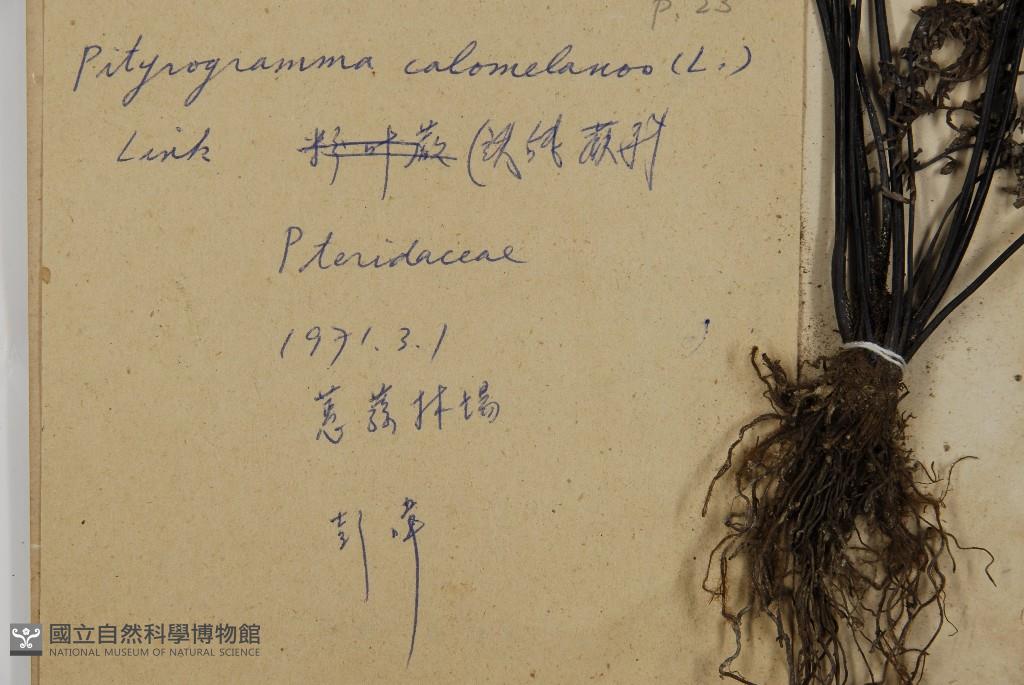 P. 23
Pityrogramma calomelanos (L.)
Link 粉叶蕨 (鉄線蕨科
Pteridaceae
1971.3.1
蕙蓀林場
彭暐
國立自然科學博物館
NATIONAL MUSEUM OF NATURAL SCIENCE